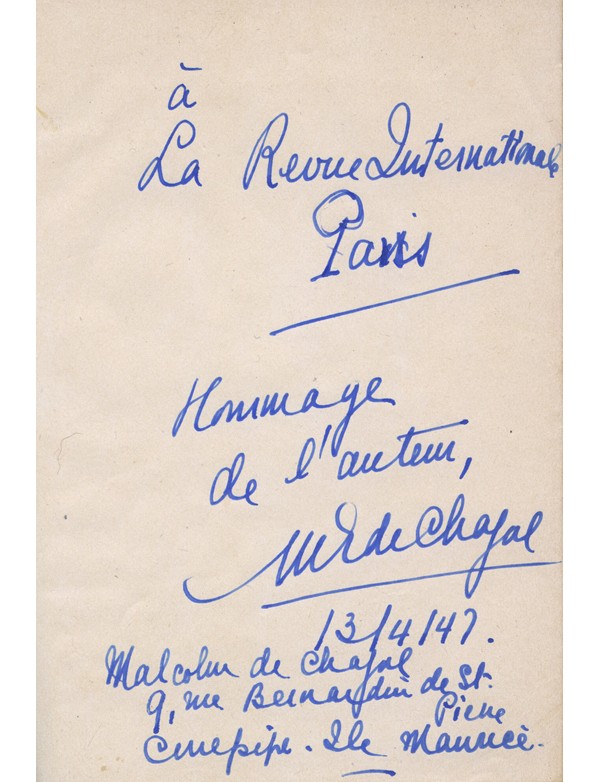 à
La Revue Internationale
Paris
Hommage
de l'auteur,
M de Chazal
13/4/47.
Malcolm de Chazal
9, rue Bernardin de St.
Pierre
Curepipe. Ile Maurice.